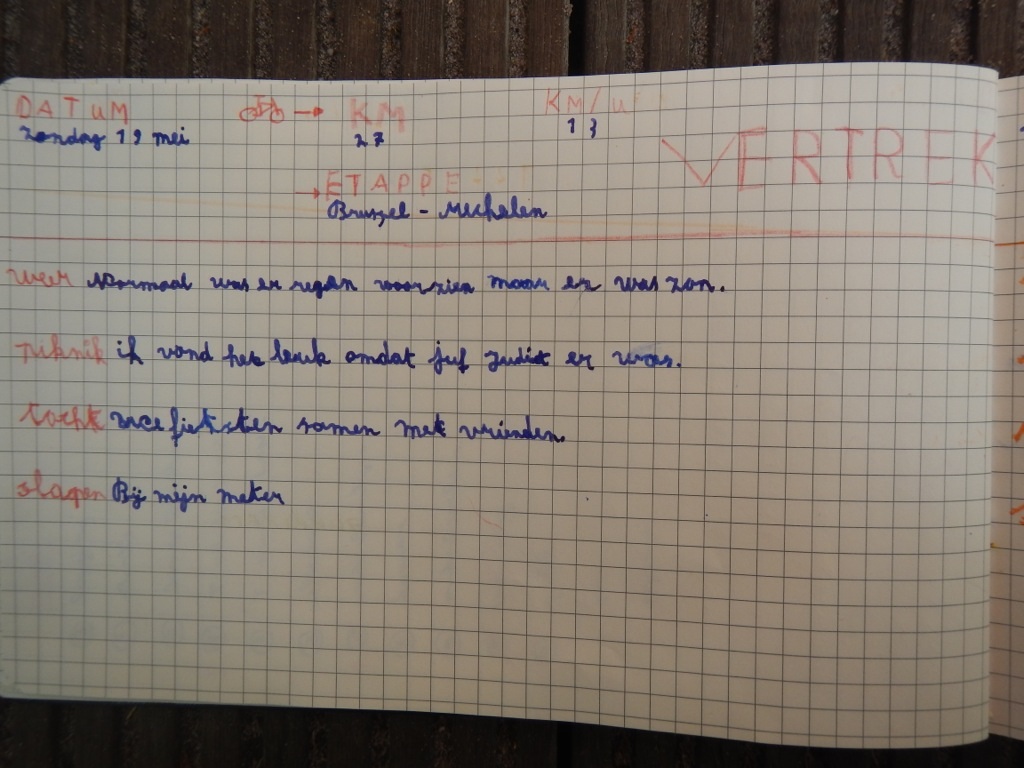 DATUM → KM KM/u
zondag 19 mei 27 13
VERTREK
→ ETAPPE
Brussel - Mechelen
weer Normaal was er regen voorzien maar er was zon.
ik vond het leuk omdat juf Judit er was.
tocht we fietsten samen met vrienden.
slapen Bij mijn meter